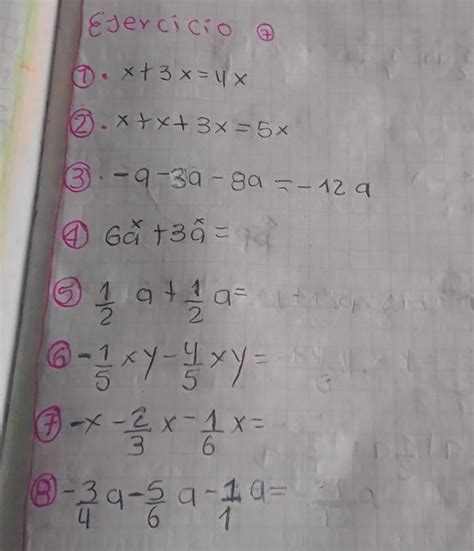 Ejercicio 7
1. x+3x=4x
2. x+x+3x=5x
3. -a-3a-8a=-12a
4 6aˣ+3aˣ=
5 1/2 a+1/2 a=
6 -1/5 xy-4/5 xy=
7 -x-2/3 x-1/6 x=
8 -3/4 a-5/6 a-1/1 a=